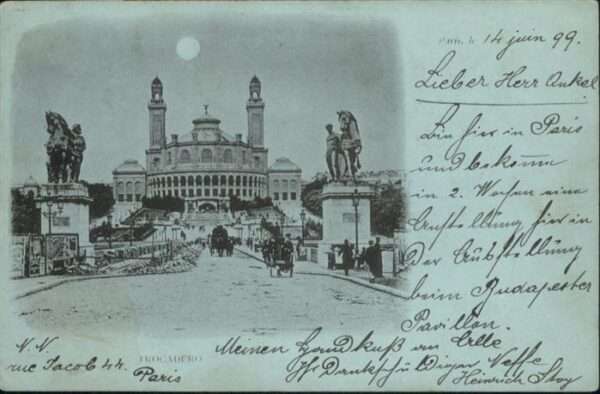 Paris, le 14 juin 99.
Lieber Herr Onkel
Bin hier in Paris
und bekome
in 2. Wochen eine
Anstellung hier in
Der Ausstellung
beim Budapester
Pavillon.
Meinen Handkuß an Alle
Ihr Dankschuldiger Neffe
Heinrich
TROCADERO
N. N
rue Jacob 44.
Paris